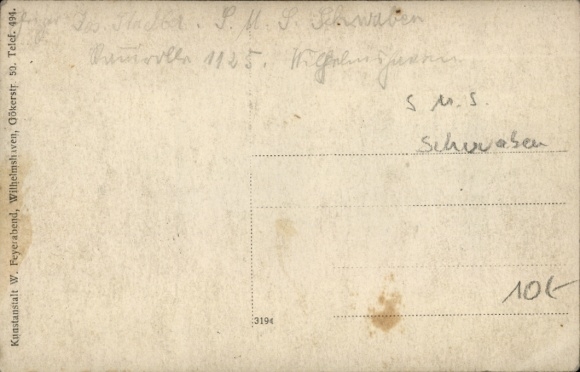 S. M. S. Schwaben
1125. Wilhelmshaven
S. M. S.
Schwaben
10.-
3194
Kunstanstalt W. Feyerabend, Wilhelmshaven, Gökerstr. 50. Telef. 494.